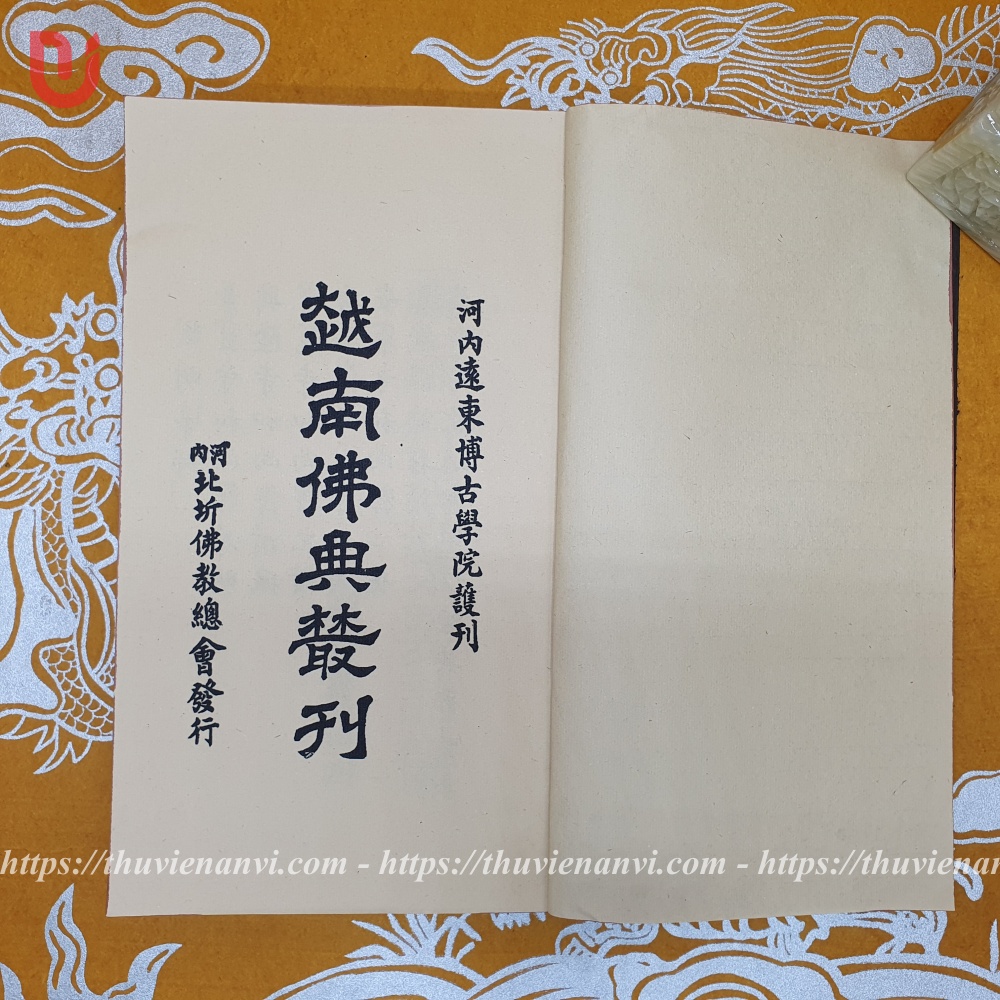 河内遠東博古學院護刊
越南佛典叢刊
河内北圻佛教總會發行
https://thuvienanvi.com - https://thuvienanvi.com - https://thuvienan